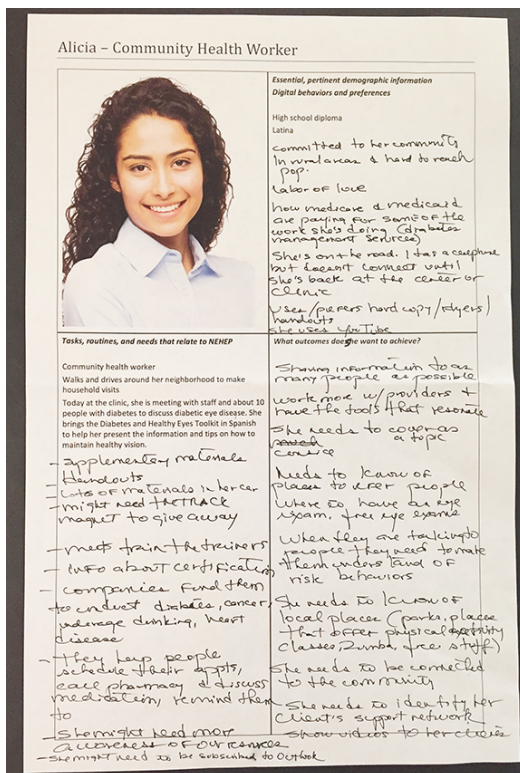 Alicia – Community Health Worker
Essential, pertinent demographic information
Digital behaviors and preferences
High school diploma
Latina
committed to her community
In rural areas & hard to reach
pop.
labor of love
how medicare & medicaid
are paying for some of the
work she's doing (diabetes
management services)
She's on the road. I has a cellphone
but doesn't connect until
she's back at the center or
clinic
uses/prefers hard copy/flyers/
handouts
she uses YouTube
Tasks, routines, and needs that relate to NEHEP
Community health worker
Walks and drives around her neighborhood to make
household visits
Today at the clinic, she is meeting with staff and about 10
people with diabetes to discuss diabetic eye disease. She
brings the Diabetes and Healthy Eyes Toolkit in Spanish
to help her present the information and tips on how to
maintain healthy vision.
- supplementary materials
- Handouts
- Lots of materials in her car
- might need the TRACK
magnet to give away
- meets train the trainers
- Info about certification
- companies fund them
to conduct diabetes, cancer,
underage drinking, heart
disease
- They help people
schedule their appts,
call pharmacy & discuss
medication, remind them
to
- She might need more
awareness of our resources
- She might need to be subscribed to Outlook
What outcomes does she want to achieve?
Sharing information to as
many people as possible
work more w/ providers &
have the tools that resonate
She needs to cover as
much a topic
concise
Needs to know of
places to refer people
where to have an eye
exam, free eye exams
When they are talking to
people they need to make
them understand of
risk behaviors
She needs to know of
local places (parks, places
that offer physical activity
classes, Zumba, free stuff)
She needs to be connected
to the community
- She needs to identify her
client's support network
- Show videos to her clients